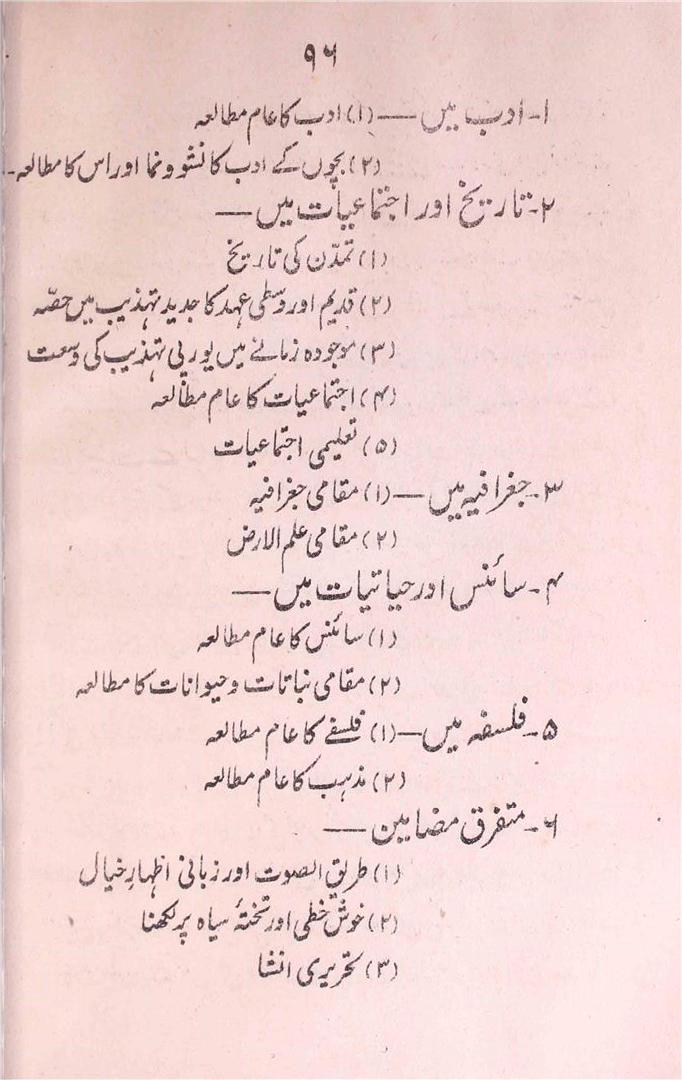 ۹۶
۱۔ ادب میں — (۱) ادب کا عام مطالعہ
(۲) بچوں کے ادب کا نشو و نما اور اس کا مطالعہ۔
۲۔ تاریخ اور اجتماعیات میں —
(۱) تمدّن کی تاریخ
(۲) قدیم اور وسطی عہد کا جدید تہذیب میں حصّہ
(۳) موجودہ زمانے میں یورپی تہذیب کی وسعت
(۴) اجتماعیات کا عام مطالعہ
(۵) تعلیمی اجتماعیات
۳۔ جغرافیہ میں — (۱) مقامی جغرافیہ
(۲) مقامی علم الارض
۴۔ سائنس اور حیاتیات میں —
(۱) سائنس کا عام مطالعہ
(۲) مقامی نباتات و حیوانات کا مطالعہ
۵۔ فلسفہ میں — (۱) فلسفے کا عام مطالعہ
(۲) مذہب کا عام مطالعہ
۶۔ متفرق مضامین —
(۱) طریق الصوت اور زبانی اظہارِ خیال
(۲) خوش خطی اور تختۂ سیاہ پر لکھنا
(۳) تحریری انشا